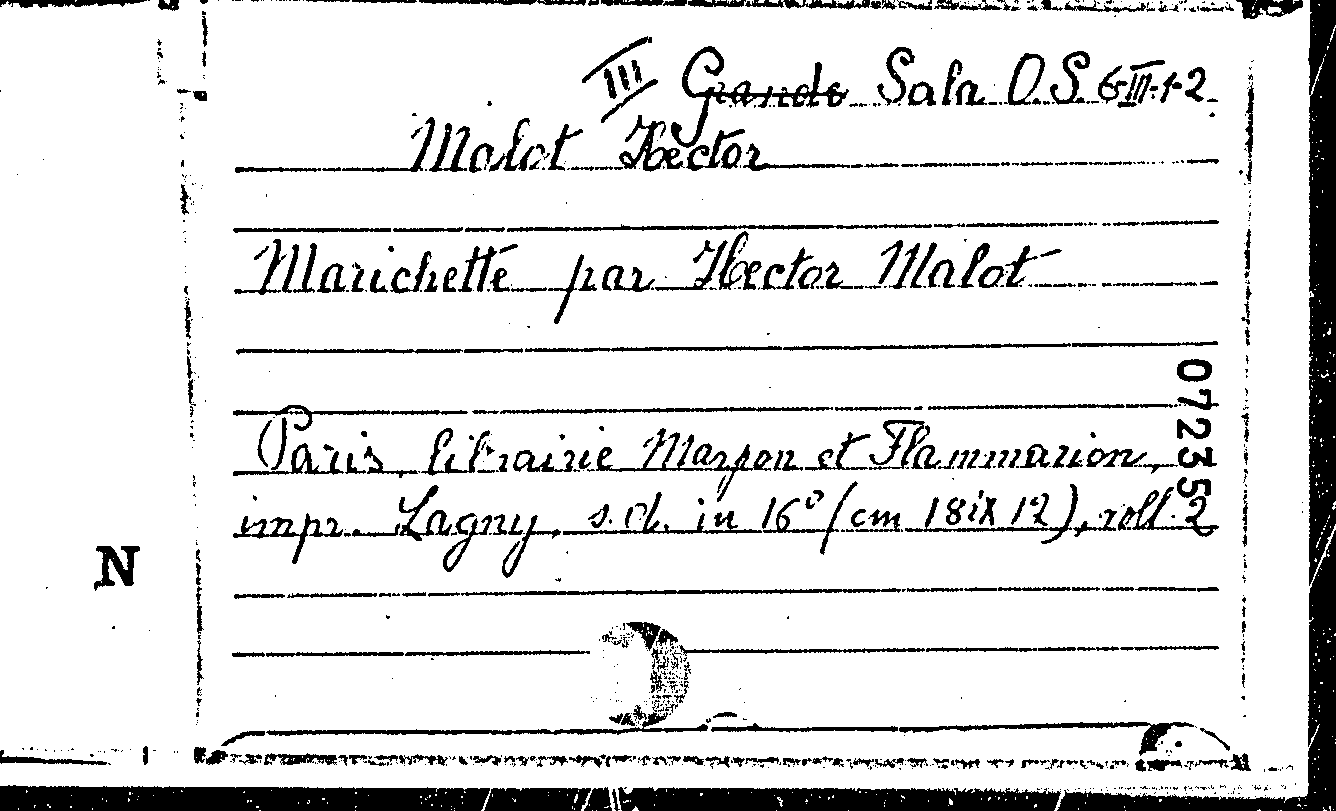 III Grande Sala O.S. 6-III-1-2
Malot Hector
Marichette par Hector Malot
072352
Paris, librairie Marpon et Flammarion,
impr. Lagny, s.d. in 16° (cm 18 ix 12), voll. 2
N